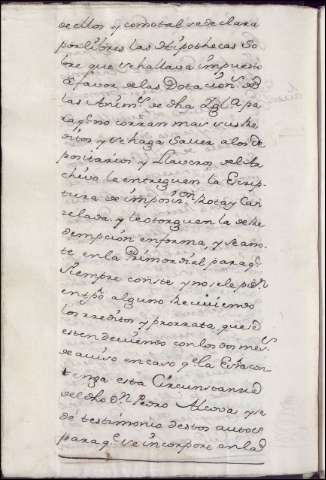 de ellos y como tal se declara
por libres las Hipothecas so
bre que se hallava impuesto
â favor de las Dotacion.s de
las Anim.s de dha Igl.a pa
ra q.e no corran mas sus Re
ditos y se haga saver a los de
positarios y Llaveros de el Ar
chivo le entreguen la Escrip
tura de imposiz.on rota y can
zelada y le otorguen la de Re
dempcion en forma, y se ano
te en la Primordial para q.e
siempre conste y no se le pida
en tpo alguno reciviendo
los rreditos y prorrata, que se
esten deviendo con los dos mes.s
de aviso en caso q.e la Esc.a con
tenga esta Circunstancia
del dho D.n Pedro Alcova y se
dé testimonio de estos autos
para q.e se incorpore en la d